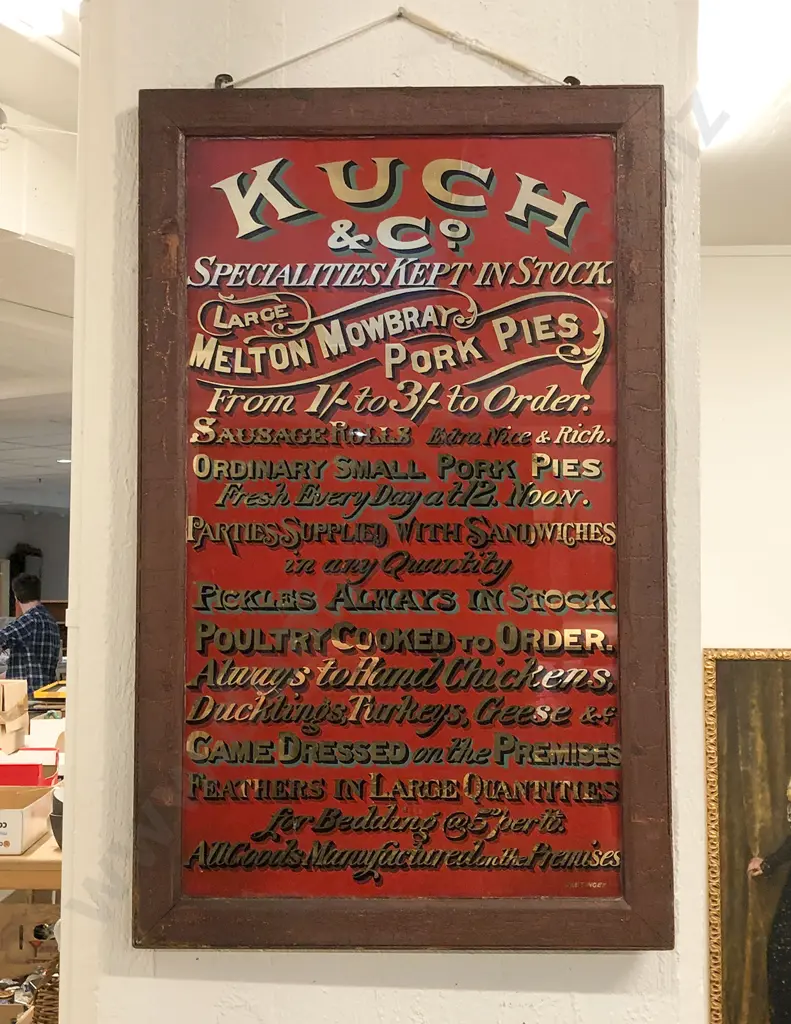 KUCH
& Co.
SPECIALITIES KEPT IN STOCK.
LARGE
MELTON MOWBRAY
PORK PIES
From 1/- to 3/- to Order.
SAUSAGE ROLLS Extra Nice & Rich.
ORDINARY SMALL PORK PIES
Fresh Every Day at 12. NOON.
PARTIES SUPPLIED WITH SANDWICHES
in any Quantity
PICKLES ALWAYS IN STOCK.
POULTRY COOKED TO ORDER.
Always to Hand Chickens,
Ducklings, Turkeys, Geese &c
GAME DRESSED on the PREMISES
FEATHERS IN LARGE QUANTITIES
for Bedding @ 5d per lb.
All Goods Manufactured on the Premises